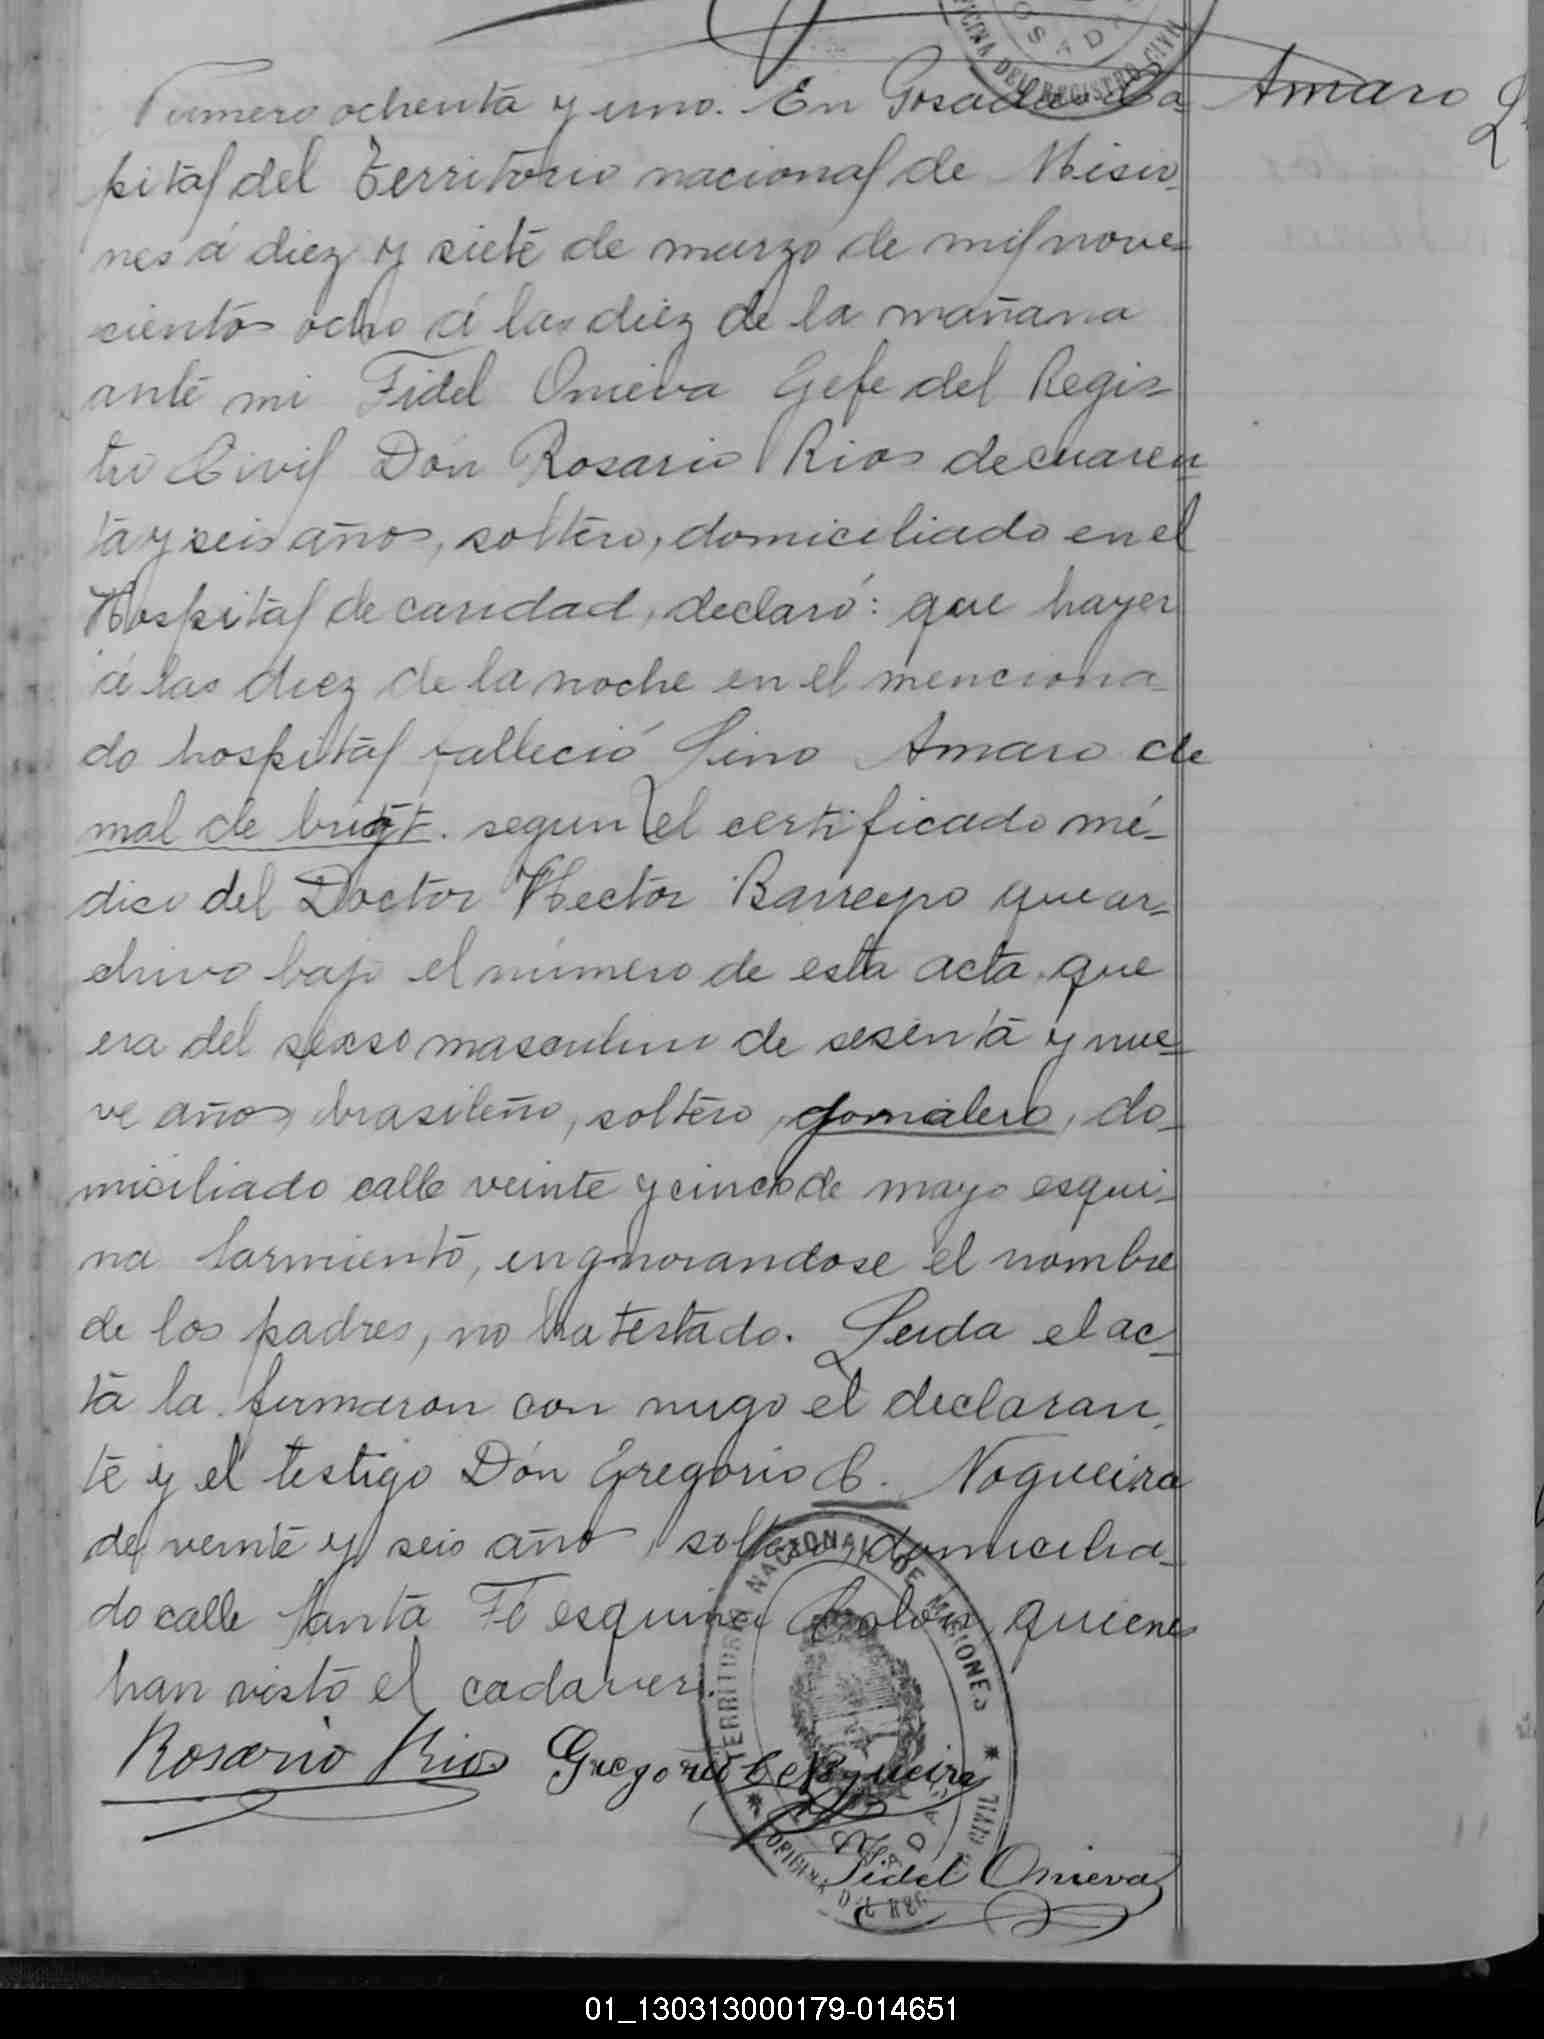 OFICINA DEL REGISTRO CIVIL
Numero ochenta y uno. En Posadas Ca
Amaro L
pital del Territorio nacional de Misio_
nes á diez y siete de marzo de mil nove_
cientos ocho á las diez de la mañana
ante mi Fidel Onieva Gefe del Regis_
tro Civil Dón Rosario Rios de cuaren_
ta y seis años, soltero, domiciliado en el
Hospital de caridad, declaró: que hayer
á las diez de la noche en el menciona_
do hospital falleció Lino Amaro de
mal de brigt. segun el certificado mé_
dico del Doctor Hector Barreyro que ar_
chivo bajo el número de esta acta, que
era del sexso masculino de sesenta y nue_
ve años, brasileño, soltero, jornalero, do_
miciliado calle veinte y cinco de mayo esqui_
na Sarmiento, ingnorandose el nombre
de los padres, no ha testado. Leida el ac_
ta la firmaron con migo el declaran_
te y el testigo Dón Gregorio C. Nogueira
de veinte y seis año, soltero, domicilia_
do calle Santa Fé esquina Colón, quienes
han visto el cadaver.
TERRITORIO NACIONAL DE MISIONES
Rosario Rios Gregorio C Nogueira
Fidel Onieva
OFICINA DEL REG CIVIL
01_130313000179-014651